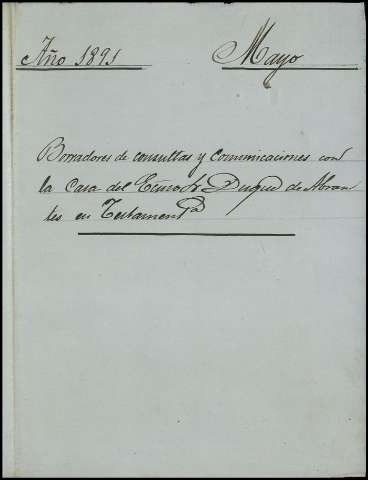 Año 1891 Mayo
Borradores de consultas y comunicaciones con
la Casa del Excmo Sr. Duque de Abran
tes en Testamentª